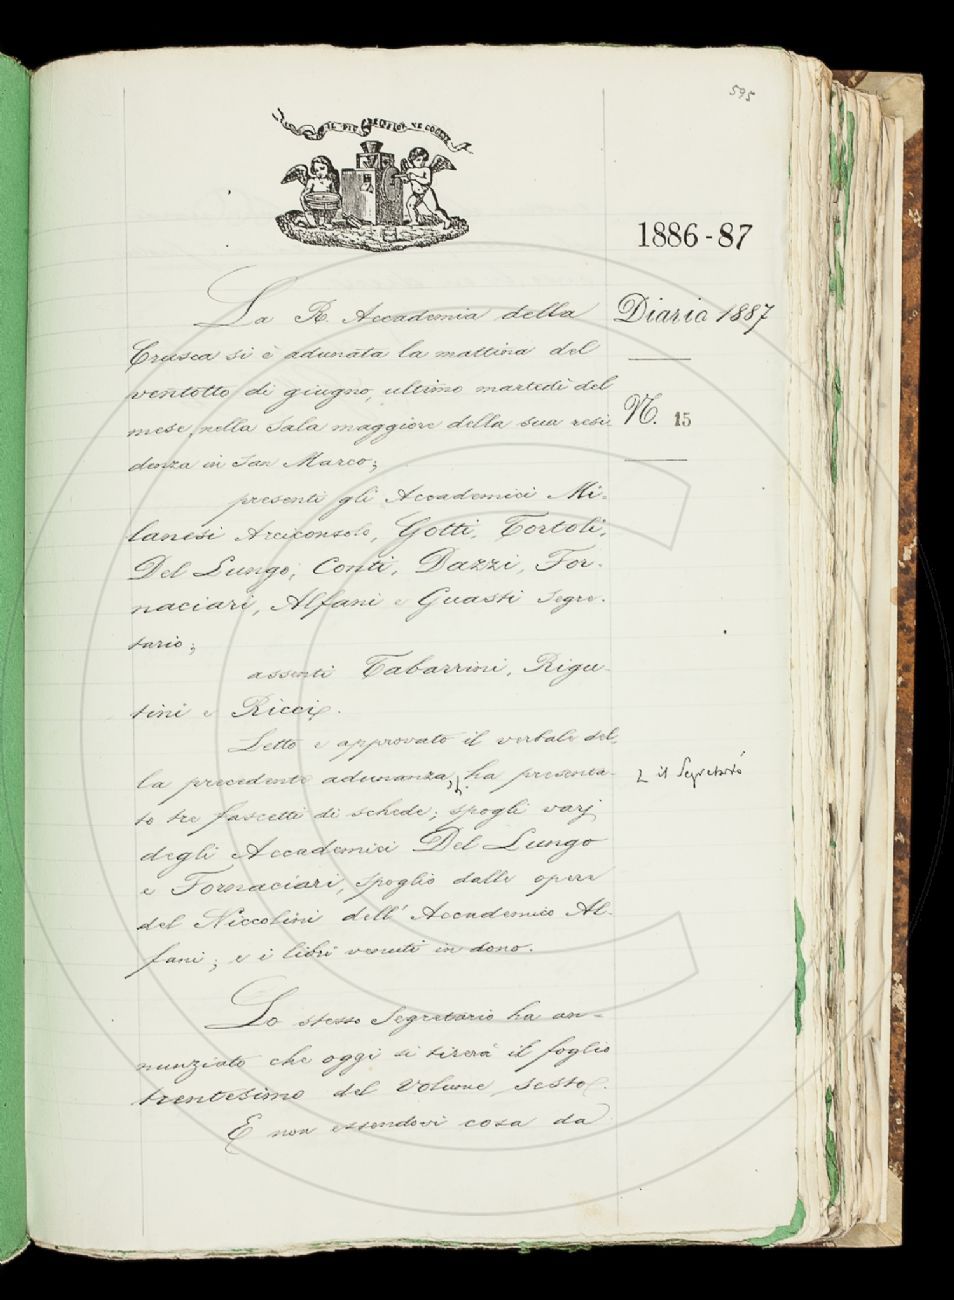 595
IL PIÙ BEL FIOR NE COGLIE
1886-87
Diario 1887
N. 15
La R. Accademia della
Crusca si è adunata la mattina del
ventotto di giugno, ultimo martedì del
mese, nella Sala maggiore della sua resi-
denza in San Marco;
presenti gli Accademici Mi-
lanesi Arciconsolo, Gotti, Tortoli,
Del Lungo, Conti, Dazzi, For-
naciari, Alfani e Guasti Segre-
tario;
assenti Tabarrini, Rigu-
tini e Ricci.
Letto e approvato il verbale del-
la precedente adunanza, ha presenta-
il Segretario
to tre fascetti di schede; spogli varj
degli Accademici Del Lungo
e Fornaciari, spoglio dalle opere
del Niccolini dell' Accademico Al-
fani; e i libri venuti in dono.
Lo stesso Segretario ha an-
nunziato che oggi si tirerà il foglio
trentesimo del Volume sesto.
E non essendovi cosa da